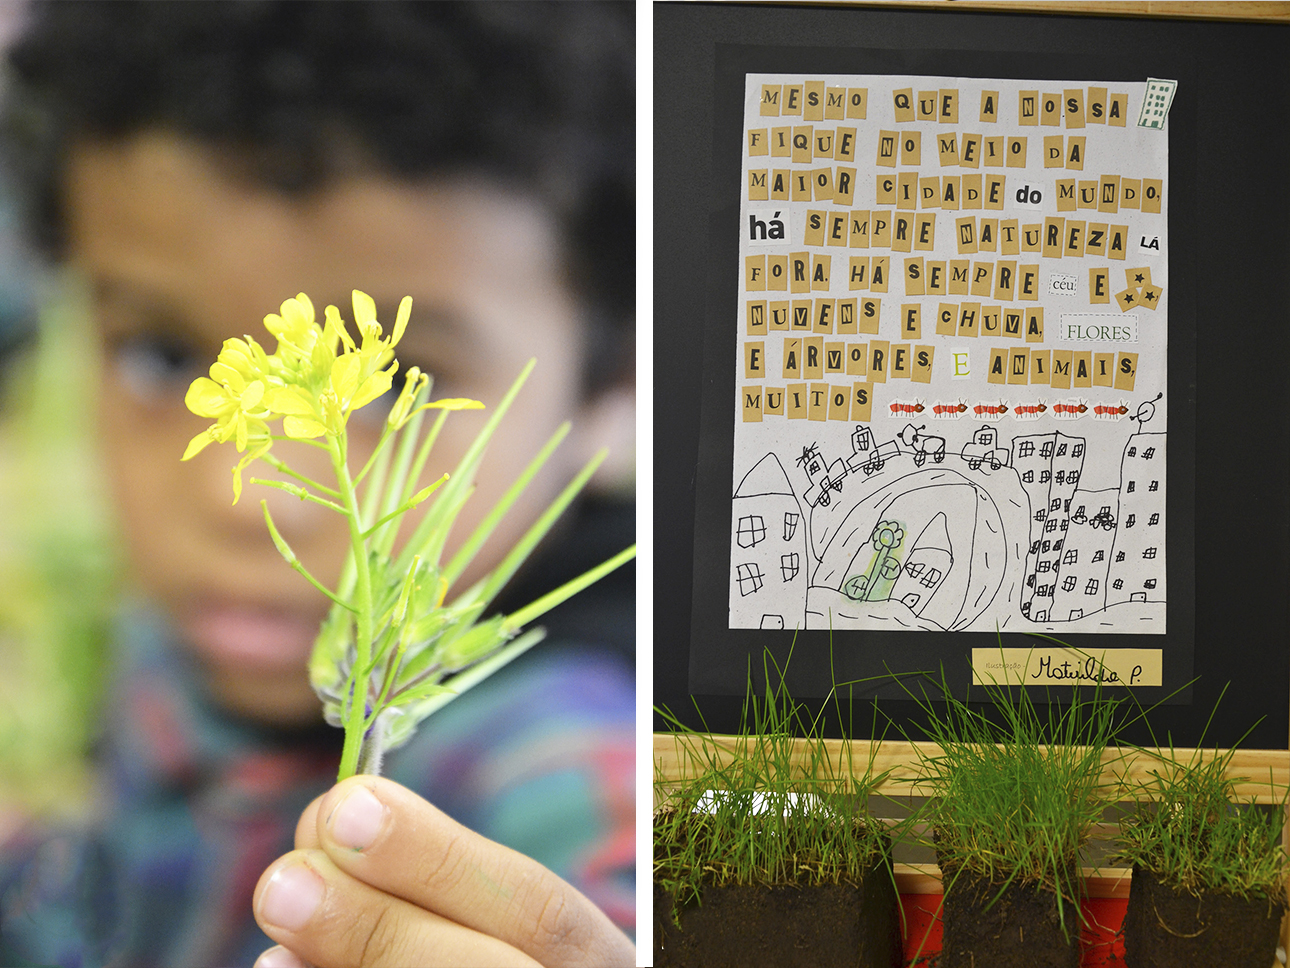 MESMO QUE A NOSSA
FIQUE NO MEIO DA
MAIOR CIDADE do MUNDO,
há SEMPRE NATUREZA LÁ
FORA. HÁ SEMPRE céu E
NUVENS E CHUVA, FLORES
E ÁRVORES, E ANIMAIS,
MUITOS
Ilustração: Matilde P.